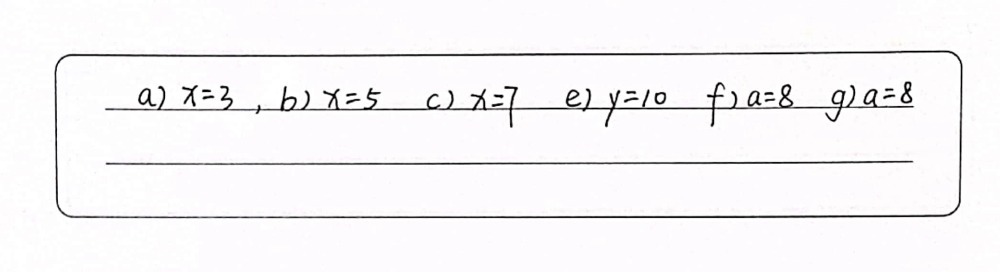 a) x=3 , b) x=5 c) x=7 e) y=10 f) a=8 g) a=8